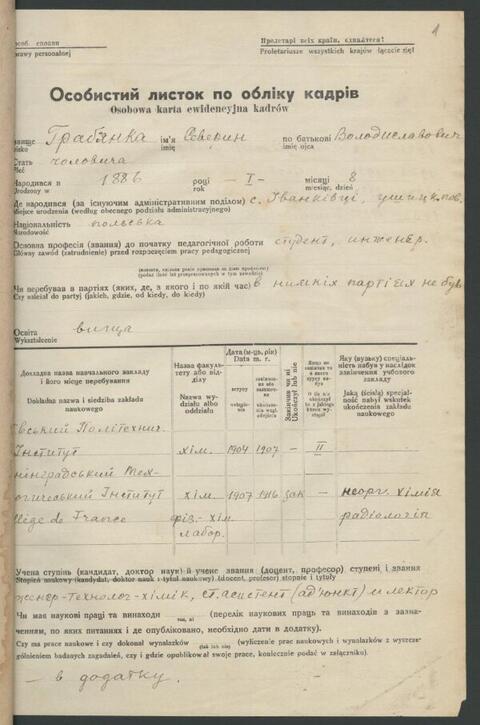 1
особ. сплави
Пролетарі всіх країн, єднайтеся!
rawy personalnej
Proletariusze wszystkich krajów łączcie się!
Особистий листок по обліку кадрів
Osobowa karta ewidencyjna kadrów
звище Граб'янка ім'я Северин по батькові Володиславович
isko imię imię ojca
Стать чоловіча
Płeć
Народився в 1886 році — I — місяці 8
Urodzony w rok miesiąc, dzień
Де народився (за існуючим адміністративним поділом) с. Іванківці, ушицк. пов.
Miejsce urodzenia (według obecnego podziału administracyjnego)
Національність польська
Narodowość
Основна професія (звання) до початку педагогічної роботи студент, инженер.
Główny zawód (zatrudnienie) przed rozpoczęciem pracy pedagogicznej
(podać ilość lat przepracowanych w tym zawodzie)
Чи перебував в партіях (яких, де, з якого і по який час) в ніяких партіях не був
Czy należał do partyj (jakich, gdzie, od kiedy, do kiedy)
Освіта вища
Wykształcenie
Докладна назва навчального закладу і його місце перебування
Dokładna nazwa i siedziba zakładu naukowego
Назва факультету або відділу
Nazwa wydziału albo oddziału
Дата (м-ць, рік)
Data m. r.
вступу
Закінчив чи ні
Ukończył lub nie
Яку (вузьку) спеціальність набув у наслідок закінчення учбового закладу
Jaką (ścisłą) specjalność nabył wskutek ukończenia zakładu
ївський Політехнич.
Інститут хім. 1904 1907 — II
нінградський Тех-
огический Інститут хім. 1907 1916 зак — неорг. хімія
llège de France фіз.-хім. радіологія
лабор.
Учена ступінь (кандидат, доктор наук) й учене звання (доцент, професор) ступені і звання
Stopień naukowy (kandydat, doktor nauk i tytuł naukowy) (docent, profesor) stopnie i tytuły
женер-технолог-хімік, ст. асистент (ад'юнкт) и лектор
Чи має наукові праці та винаходи (перелік наукових праць та винаходів з зазна-
так, ні
ченням, по яких питаннях і де опубліковано, необхідно дати в додатку).
Czy ma prace naukowe i czy dokonał wynalazków (wyliczenie prac naukowych i wynalazków z wyszcze-
(tak lub nie)
gólnieniem badanych zagadnień, czy i gdzie opublikował swoje prace, koniecznie podać w załączniku).
— в додатку.